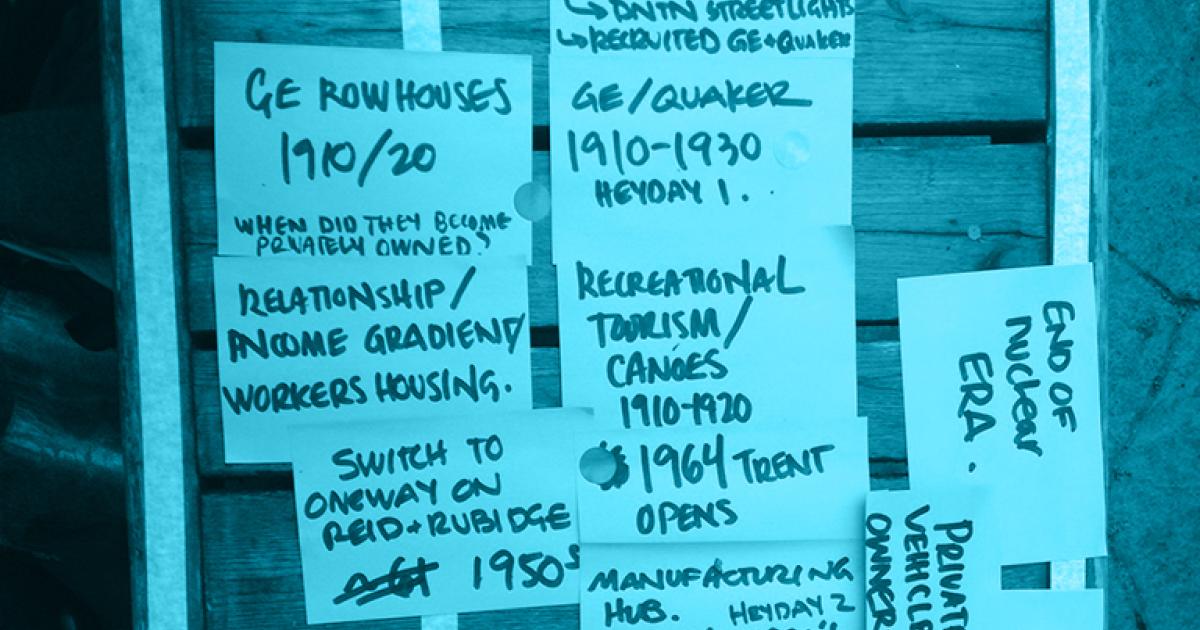 GE ROWHOUSES
1910/20
WHEN DID THEY BECOME
PRIVATELY OWNED?
RELATIONSHIP/
INCOME GRADIENT/
WORKERS HOUSING.
SWITCH TO
ONEWAY ON
REID + RUBIDGE
1950s
↳ DNTN STREETLIGHTS
↳ RECRUITED GE + QUAKER
GE/QUAKER
1910-1930
HEYDAY 1.
RECREATIONAL
TOURISM/
CANOES
1910-1920
1964 TRENT
OPENS
MANUFACTURING
HUB. HEYDAY 2
END OF
NUCLEAR
ERA.
PRIVATE
VEHICLE
OWNER